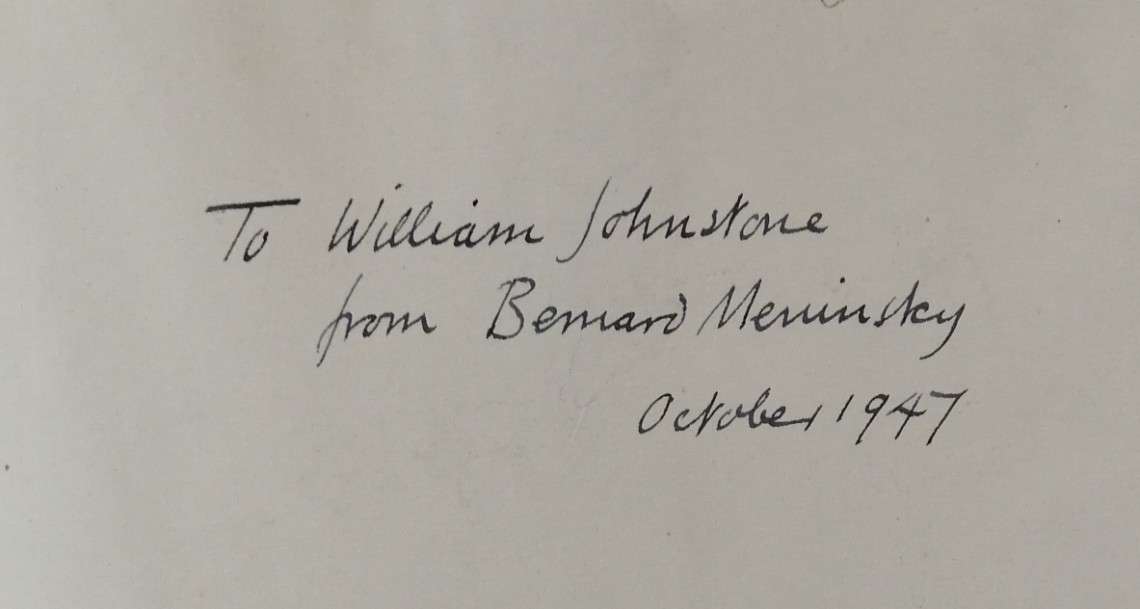 To William Johnstone
from Bernard Meninsky
October 1947